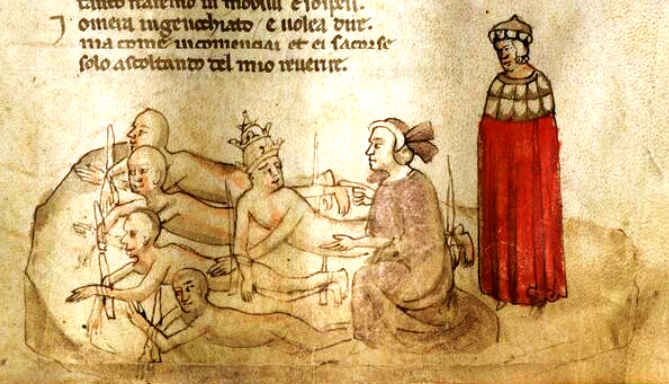 tanto staremo in mobili e sospesi.
I omera ingenocchiato / e uolea dire.
ma come incomenciai et ei sacorse
solo ascoltando del mio reuerire.